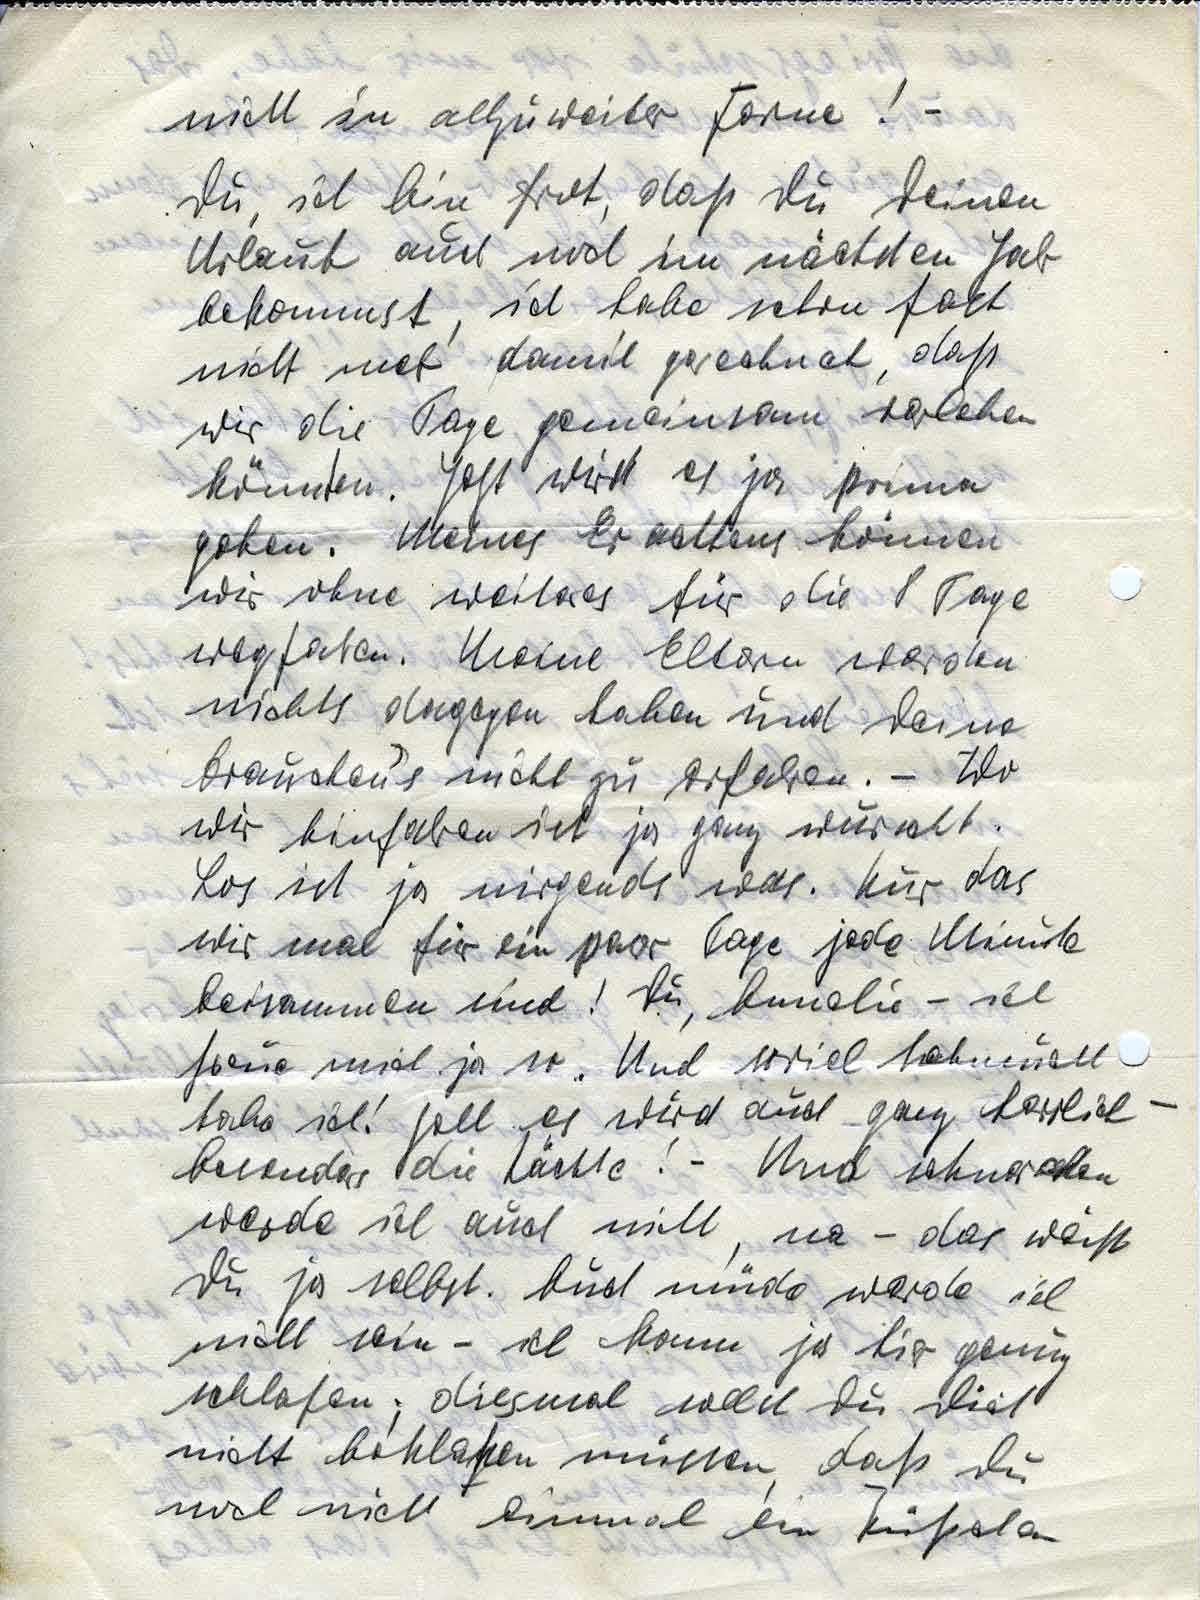 nicht in allzuweiter Ferne! -
Du, ich bin froh, daß Du Deinen
Urlaub auch noch im nächsten Jahr
bekommst, ich habe schon fast
nicht mehr damit gerechnet, daß
wir die Tage gemeinsam verleben
können. Jetzt wird es ja prima
gehen. Meines Erachtens können
wir ohne weiteres für die 8 Tage
wegfahren. Meine Eltern werden
nichts dagegen haben und Deine
brauchen's nicht zu erfahren. - Wo
wir hinfahren ist ja ganz wurscht.
Los ist ja nirgends was. Nur das
wir mal für ein paar Tage jede Minute
beisammen sind! Du, Annelie - ich
freue mich ja so. Und soviel Sehnsucht
habe ich! Gell es wird auch ganz herrlich -
besonders die Nächte! - Und schnarchen
werde ich auch nicht, na - das weißt
Du ja selbst. Auch müde werde ich
nicht sein - ich kann ja hier genug
schlafen; diesmal sollst Du Dich
nicht beklagen müssen, daß Du
noch nicht einmal ein Küßchen